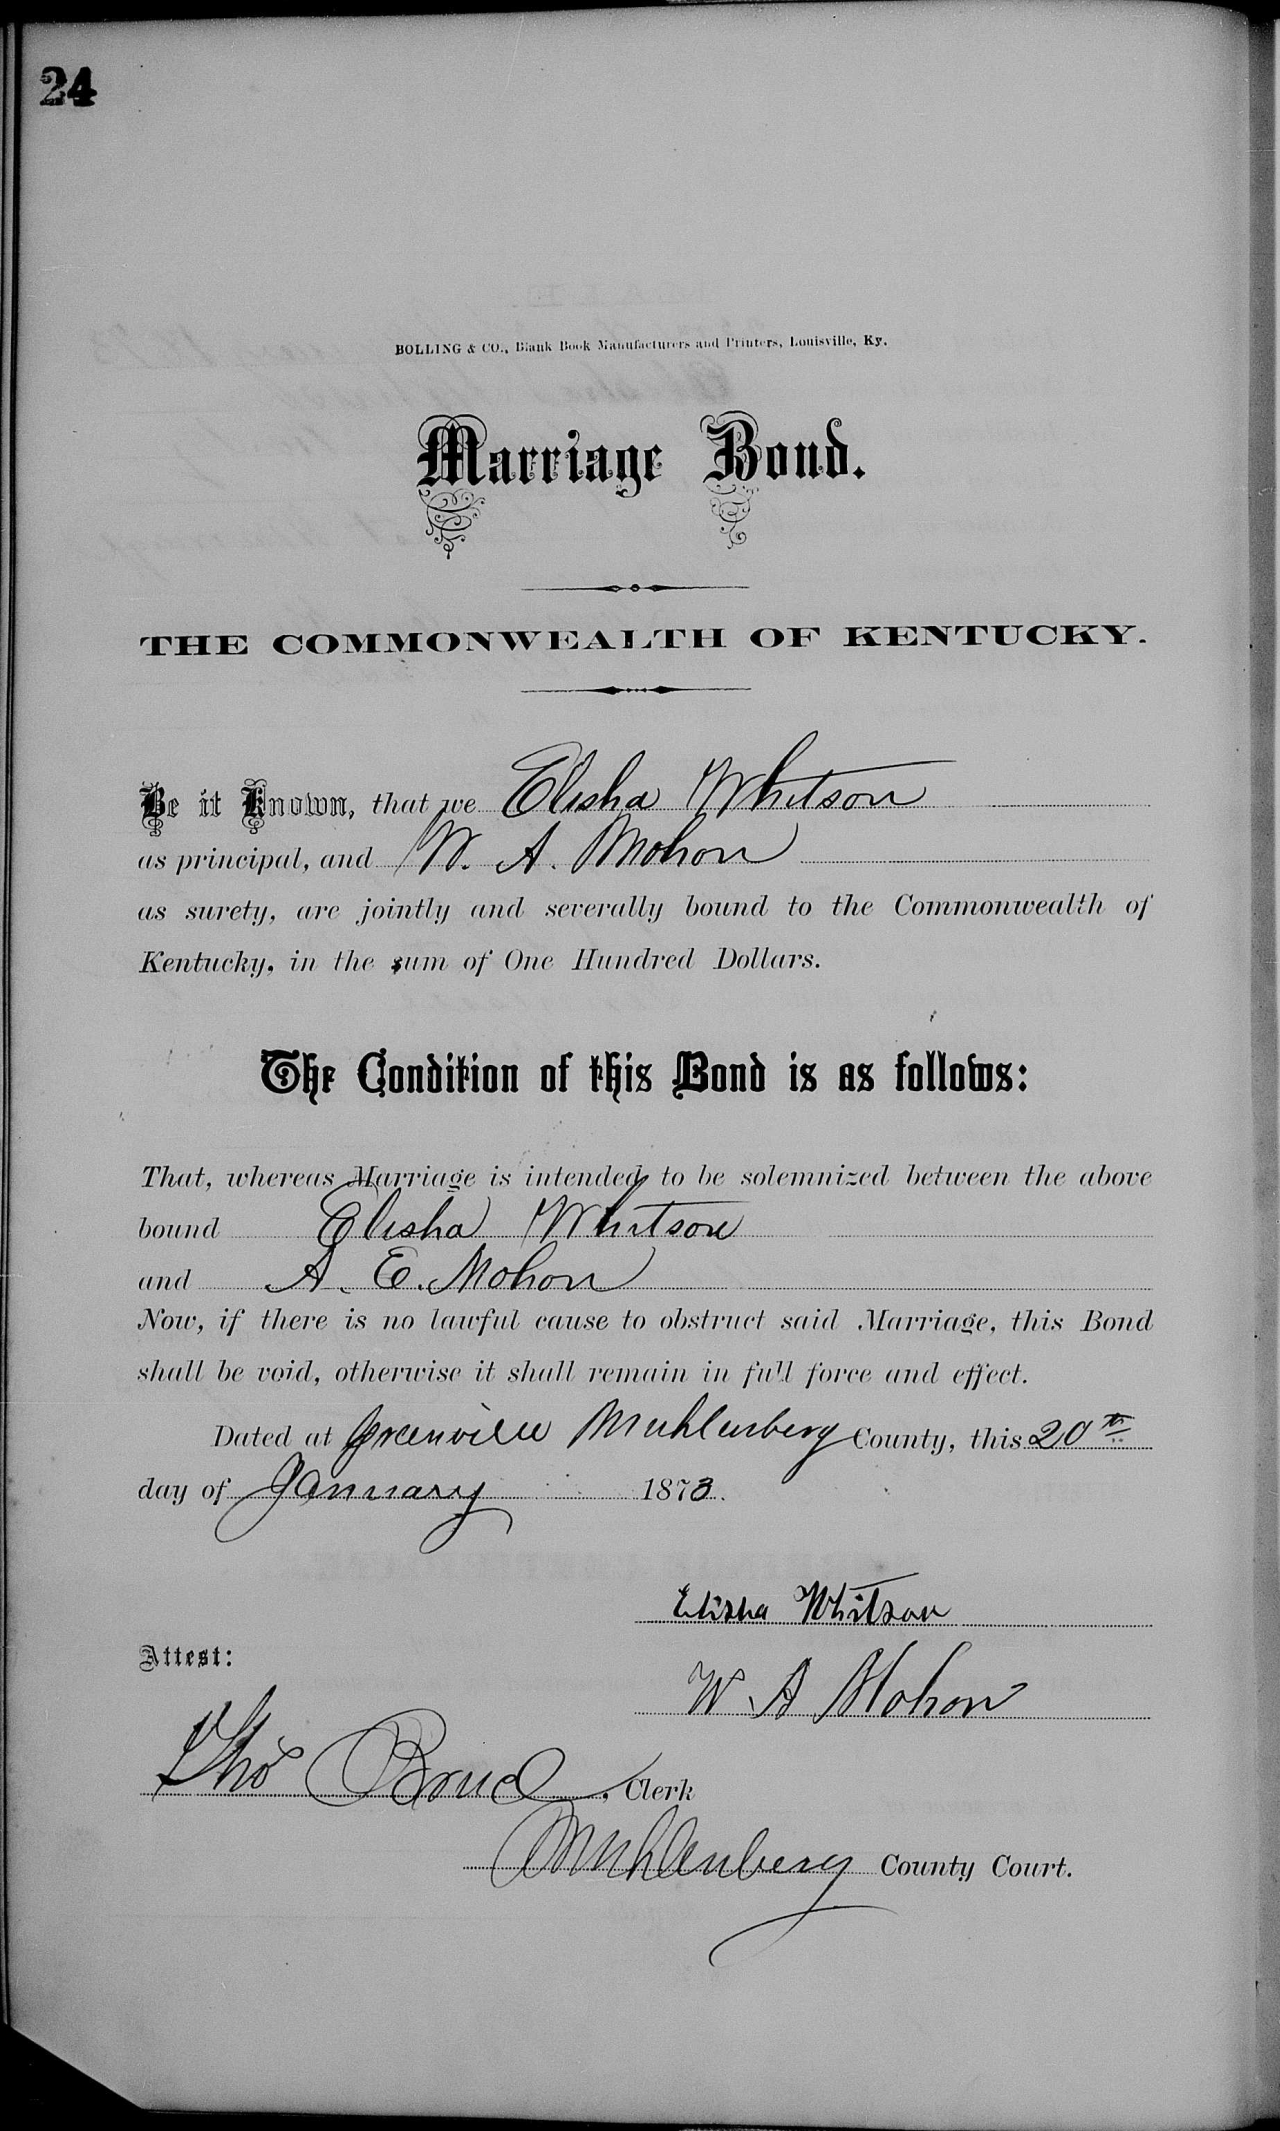 24
BOLLING & CO., Blank Book Manufacturers and Printers, Louisville, Ky.
Marriage Bond.
THE COMMONWEALTH OF KENTUCKY.
Be it Known, that we Elisha Whitson
as principal, and W. A. Mohon
as surety, are jointly and severally bound to the Commonwealth of
Kentucky, in the sum of One Hundred Dollars.
The Condition of this Bond is as follows:
That, whereas Marriage is intended to be solemnized between the above
bound Elisha Whitson
and A. E. Mohon
Now, if there is no lawful cause to obstruct said Marriage, this Bond
shall be void, otherwise it shall remain in full force and effect.
Dated at Greenville Muhlenberg County, this 20th
day of January 1873.
Elisha Whitson
Attest:
W A Mohon
Tho Bruce, Clerk
Muhlenberg County Court.